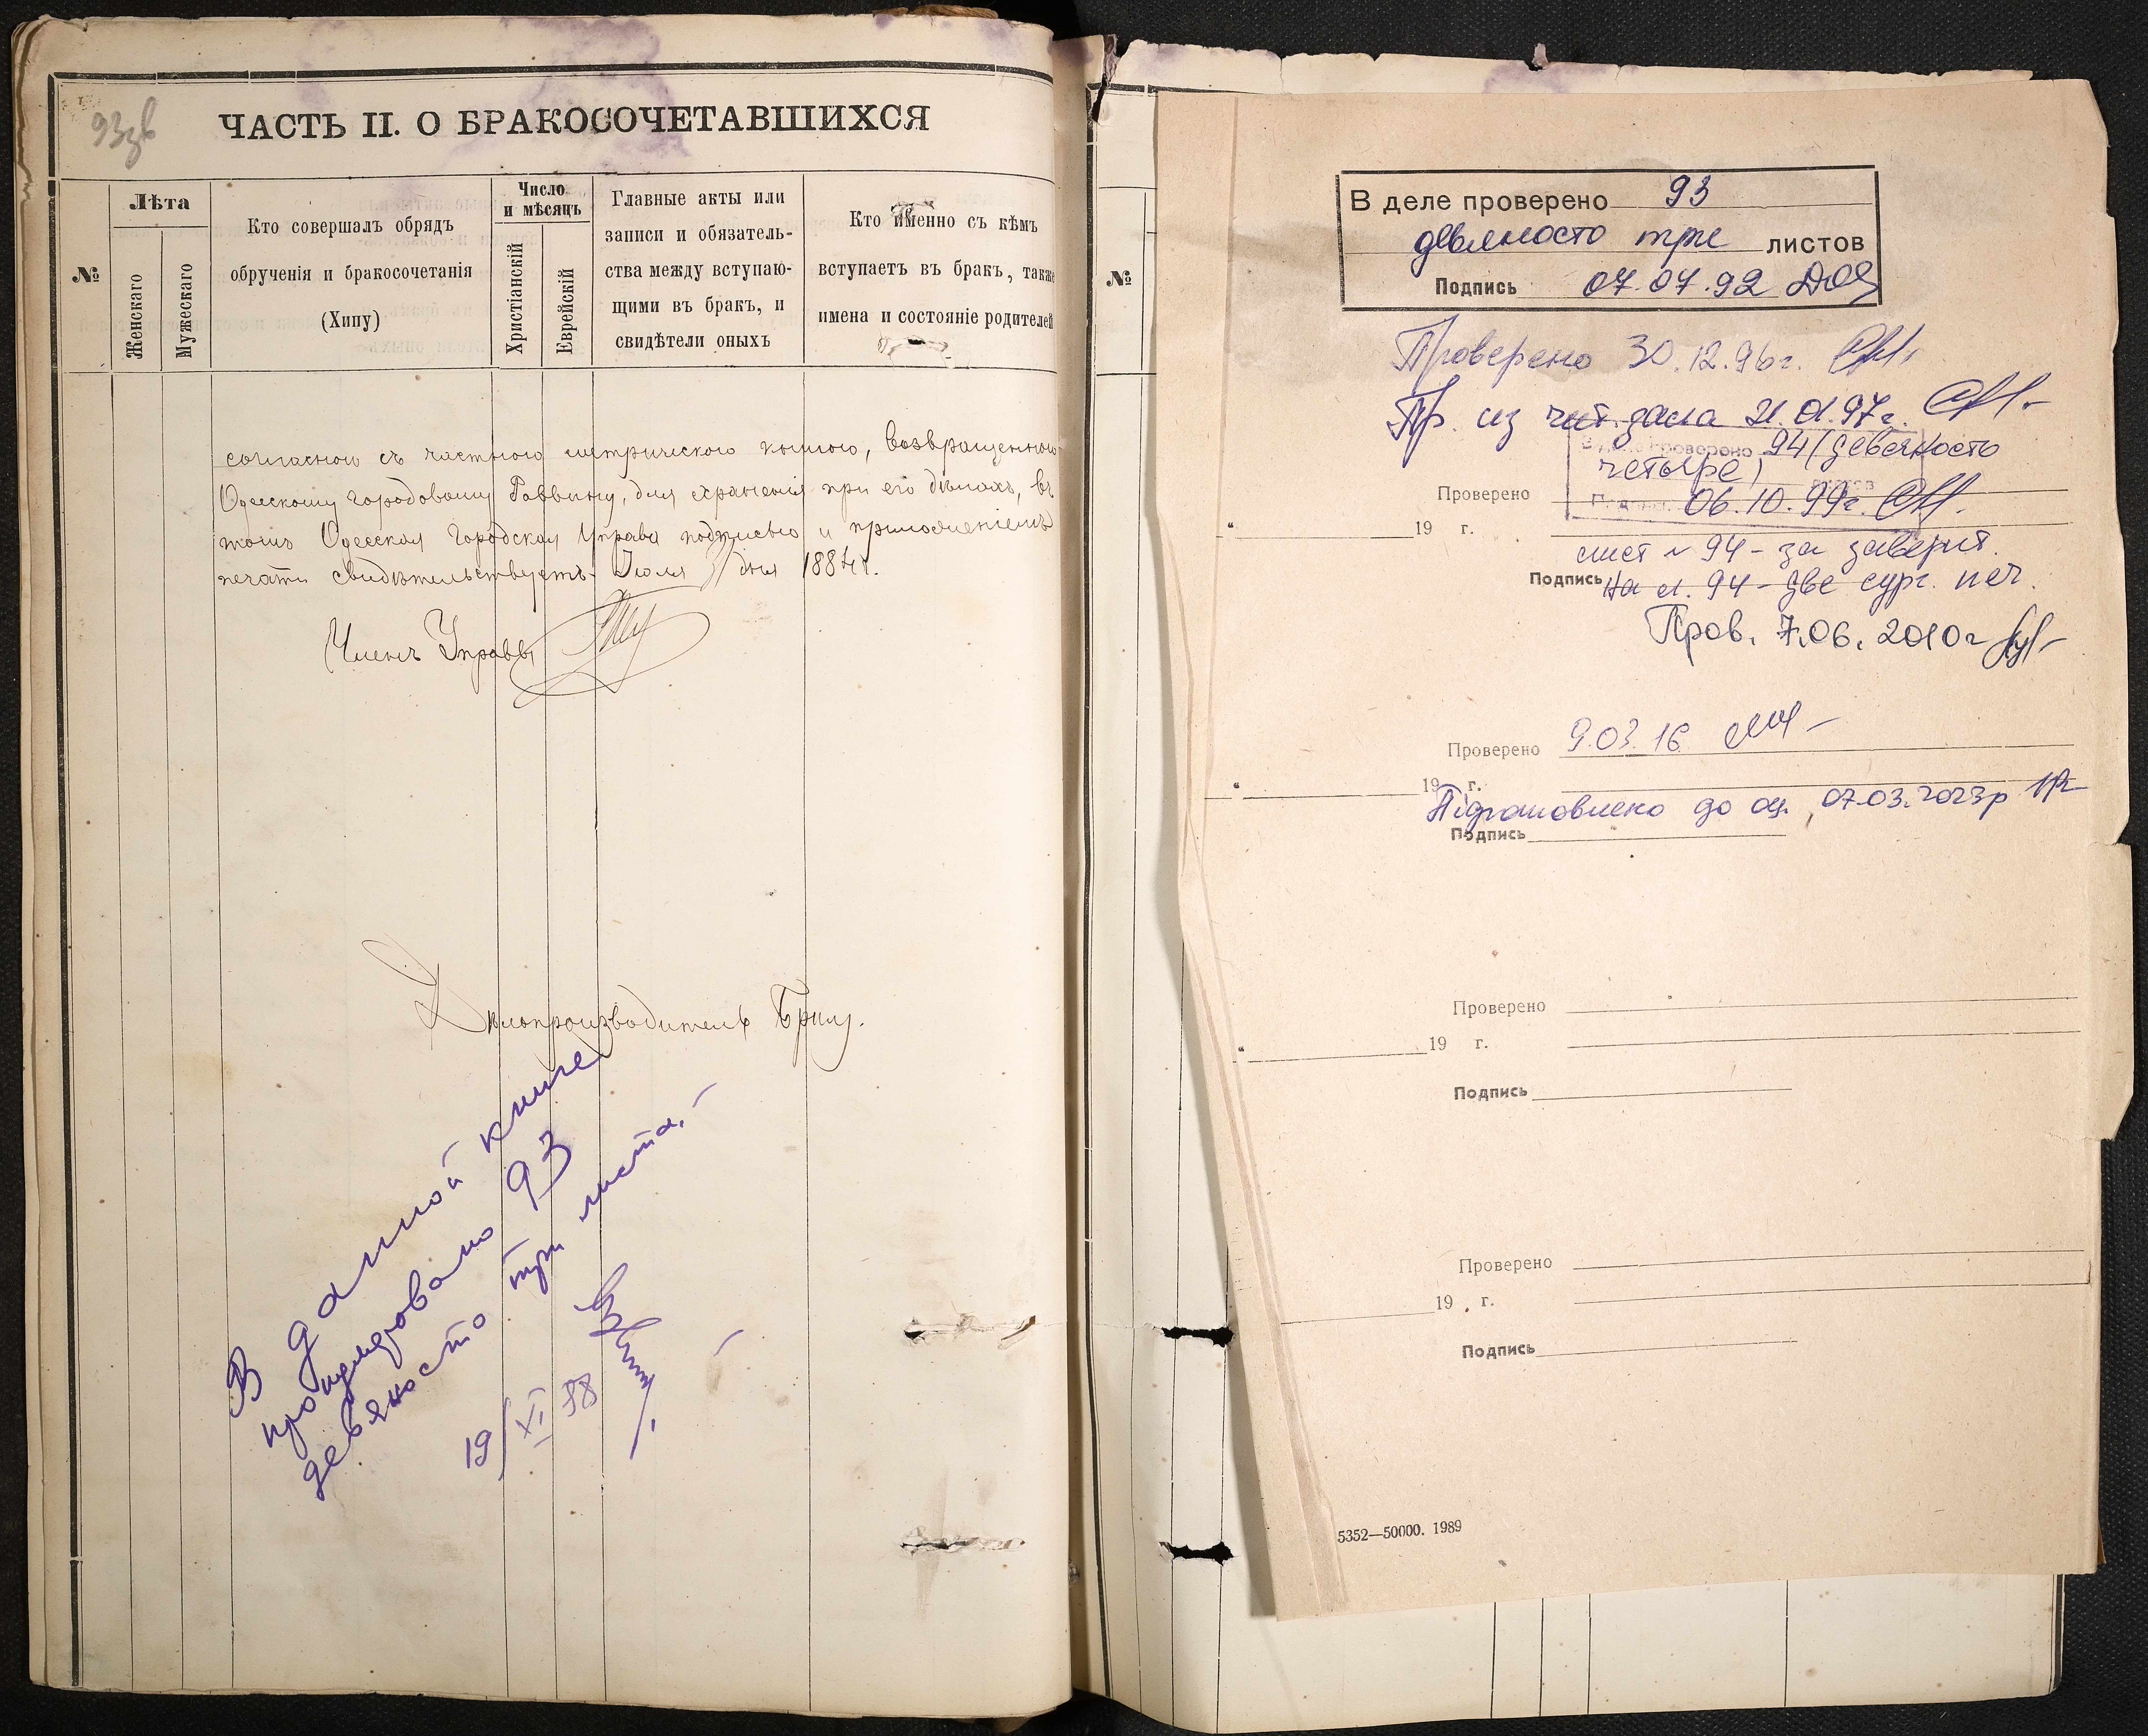 93зв
ЧАСТЬ II. О БРАКОСОЧЕТАВШИХСЯ
№
Лѣта
Женскаго
Мужескаго
Кто совершалъ обрядъ
обрученія и бракосочетанія
(Хипу)
Число
и мѣсяцъ
Христіанскій
Еврейскій
Главные акты или
записи и обязатель-
ства между вступаю-
щими въ бракъ, и
свидѣтели оныхъ
Кто именно съ кѣмъ
вступаетъ въ бракъ, также
имена и состояніе родителей
согласною съ частною метрическою книгою, возвращенною
Одесскому Городовому Раввину, для храненія при его дѣлахъ, въ
томъ Одесская Городская Управа подписью и приложеніемъ
печати свидѣтельствуетъ. Іюля 31 дня 1884 г.
Членъ Управы
Дѣлопроизводитель
В данной книге
пронумеровано 93
девяносто три листа.
19/XI 58
№
В деле проверено 93
девяносто три листов
Подпись 07.07.92
Проверено 30.12.96г.
Пр. из чит. зала 21.01.97г.
94 (девяносто
четыре)
Проверено
06.10.99г.
19 г.
лист № 94 - за заверит.
Подпись На л. 94 - две сург. печ.
Пров. 7.06.2010г
Проверено 9.03.16
19 г.
Підготовлено до оц. 07.03.2023р
Подпись
Проверено
19 г.
Подпись
Проверено
19 г.
Подпись
5352—50000. 1989